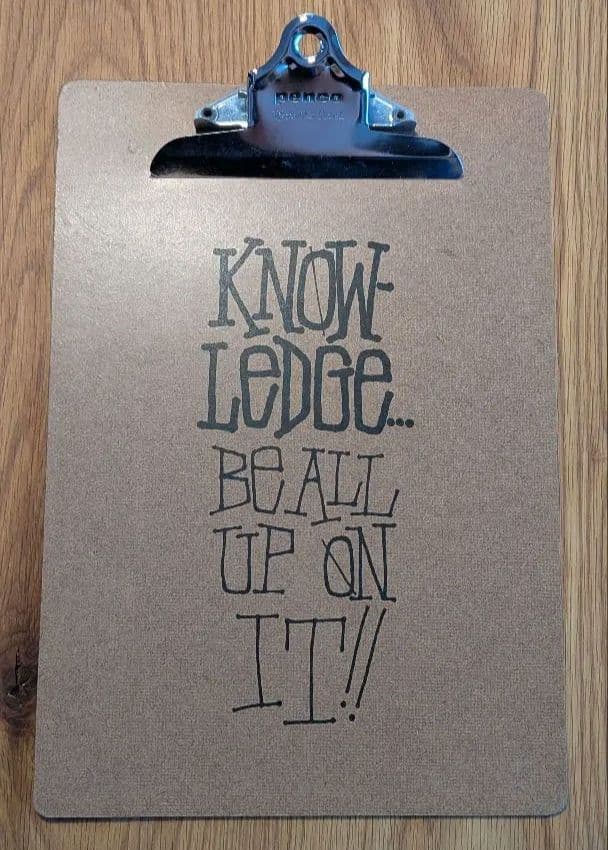 penco
KNOW-
LEDGE...
BE ALL
UP ON
IT!!